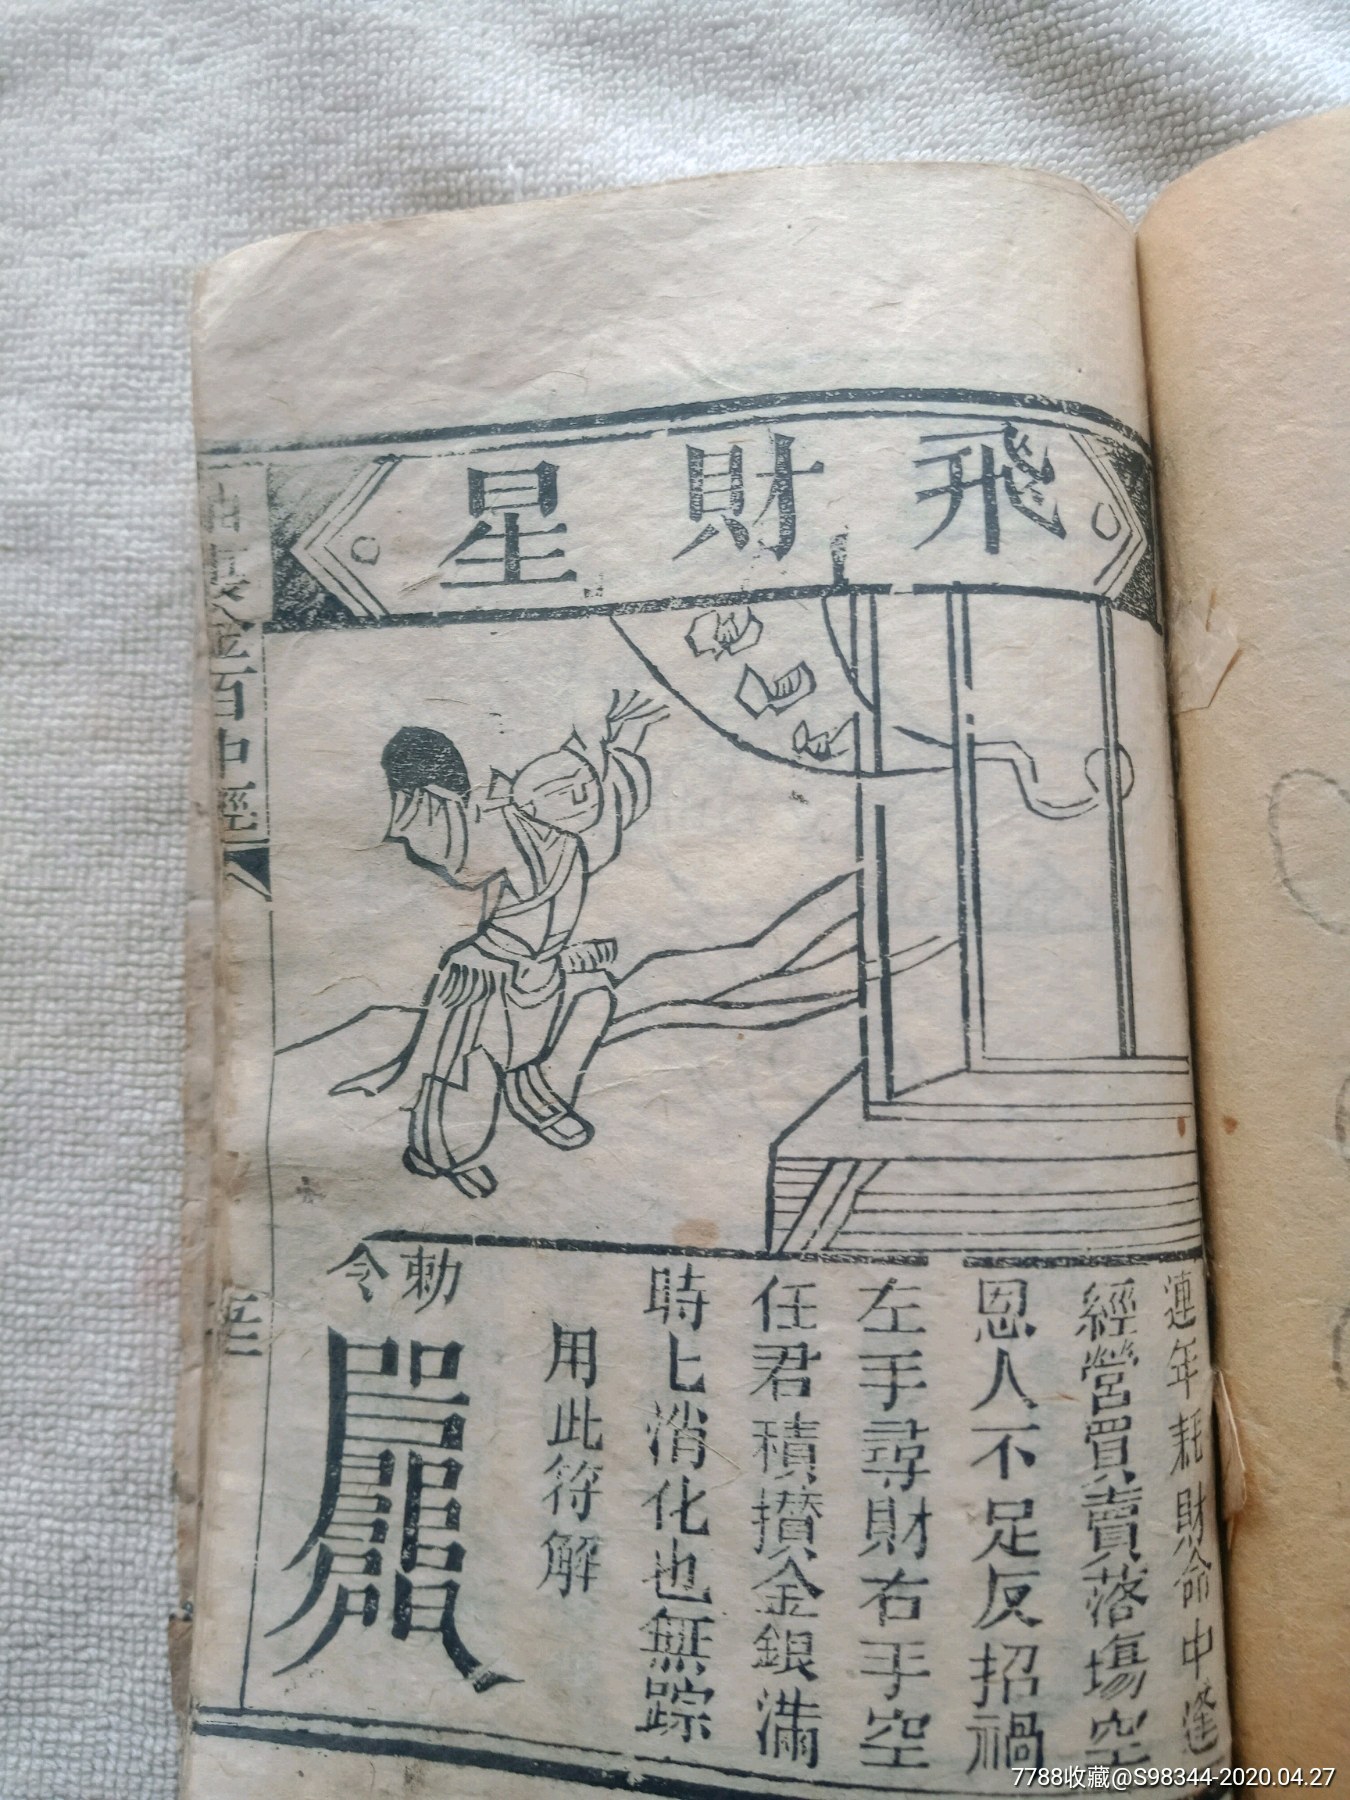 飛財星
連年耗財命中逢
經營買賣落塲空
恩人不足反招禍
左手尋財右手空
任君積攅金銀滿
時七消化也無踪
用此符解
勅令
金百中經
7788收藏@S98344-2020.04.27